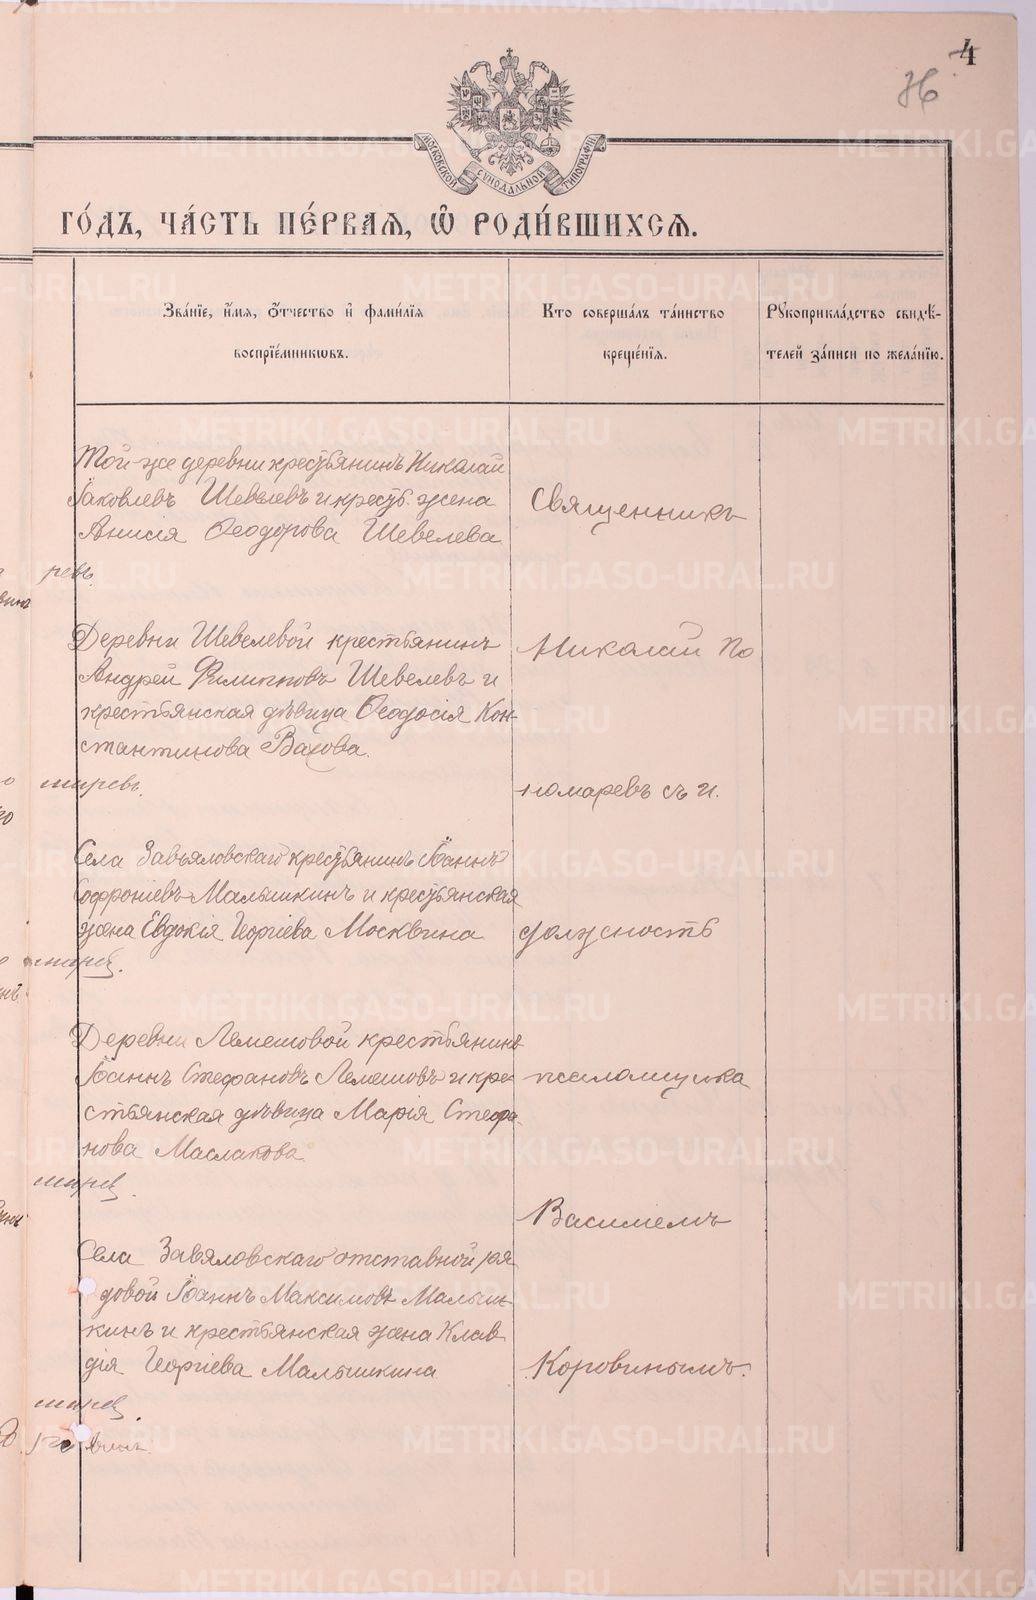 4
36
МОСКОВСКОЙ СѴНОДАЛЬНОЙ ТИПОГРАФІИ
ГО́ДЪ, ЧА́СТЬ ПЕ́РВАЯ, Ѽ РОДИ́ВШИХСЯ.
Зва́нїе, и҆́мѧ, ѻ҆́тчество и҆ фами́лїѧ
воспрїе́мникѡвъ.
Кто соверша́лъ та́инство
креще́нїѧ.
Рꙋкоприкла́дство свидѣ́-
телей за́писи по жела́нїю.
Той-же деревни крестьянинъ Николай
Іаковлевъ Шевелевъ и крест. жена
Анисія Ѳеодорова Шевелева
ревъ.
Деревни Шевелевой крестьянинъ
Андрей Филипповъ Шевелевъ и
крестьянская дѣвица Ѳеодосія Кон-
стантинова Вахова.
Села Завьяловскаго крестьянинъ Іоаннъ
Софроніевъ Малышкинъ и крестьянская
жена Евдокія Георгіева Москвина
Деревни Лемешовой крестьянинъ
Іоаннъ Стефановъ Лемешовъ и кре-
стьянская дѣвица Марія Стефа-
нова Маслакова.
Села Завьяловскаго отставной ря
довой Іоаннъ Максимовъ Малыш-
кинъ и крестьянская жена Клав
дія Георгіева Малышкина
Священникъ
Николай По
номаревъ съ и.
должность
псаломщика
Василіемъ
Коровинымъ.
METRIKI.GASO-URAL.RU